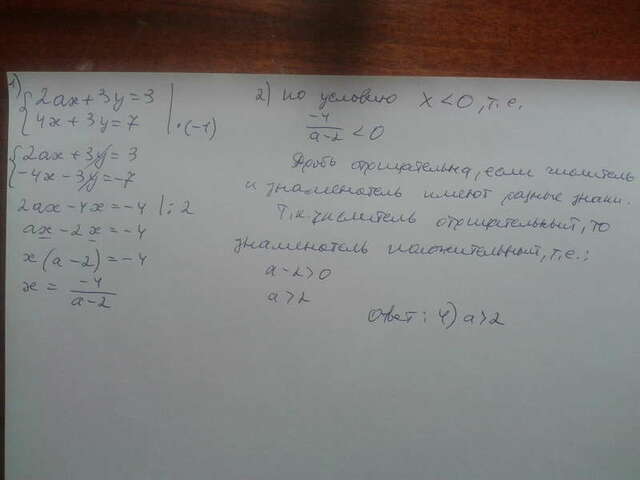 1)
{2ax+3y=3
{4x+3y=7 |·(-1)
{2ax+3y=3
{-4x-3y=-7
2ax-4x=-4 |:2
ax-2x=-4
x(a-2)=-4
x = -4/(a-2)
2) по условию x<0, т.е.
-4/(a-2) <0
Дробь отрицательна, если числитель
и знаменатель имеют разные знаки.
Т.к. числитель отрицательный, то
знаменатель положительный, т.е.:
a-2>0
a>2
Ответ: 4) a>2